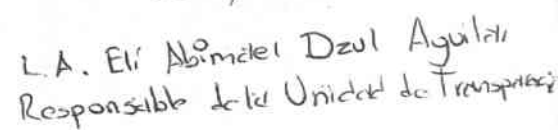 L.A. Elí Abimael Dzul Aguilar
Responsable de la Unidad de Transparencia